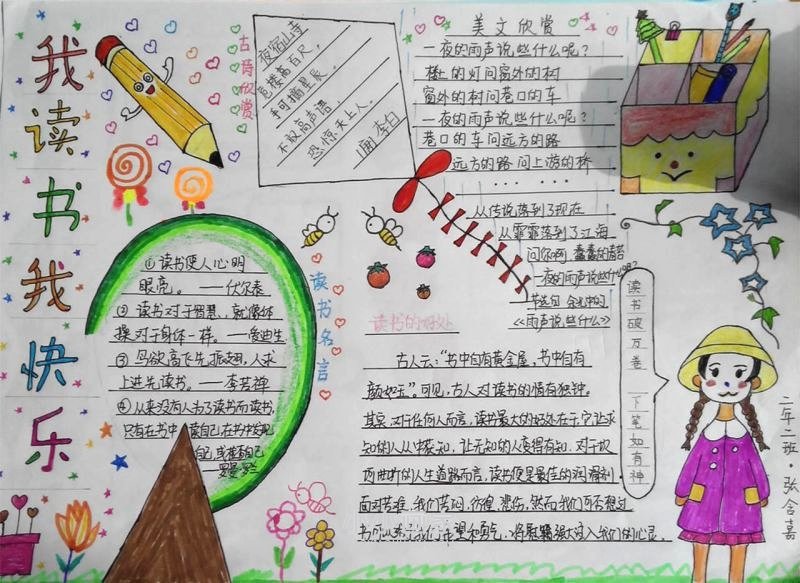 我读书我快乐
古诗欣赏
夜宿山寺
危楼高百尺,
手可摘星辰。
不敢高声语,
恐惊天上人。
(唐)李白
美文欣赏
一夜的雨声说些什么呢?
楼上的灯问窗外的树
窗外的树问巷口的车
一夜的雨声说些什么呢?
巷口的车问远方的路
远方的路问上游的桥
从传说落到了现在
从霏霏落到了江海
问你啊,蠢蠢的青苔
一夜的雨声说些什么呢?
节选自 余光中的
《雨声说些什么》
读书名言
①读书使人心明
眼亮。——伏尔泰
②读书对于智慧,就像体
操对于身体一样。——爱迪生
③鸟欲高飞先振翅,人求
上进先读书。——李苦禅
④从来没有人为了读书而读书,
只有在书中读自己,在书中发现
自己,或检查自己
——罗曼·罗兰
读书的好处
古人云:“书中自有黄金屋,书中自有
颜如玉”。可见,古人对读书的情有独钟。
其实,对于任何人而言,读书最大的好处在于:它让求
知的人从中获知,让无知的人变得有知。对于坎
坷曲折的人生道路而言,读书便是最佳的润滑剂。
面对苦难,我们苦闷、彷徨、悲伤,
希望和勇气,将慰藉注入我们的心灵.
读书破万卷 下笔如有神
二年二班·张含嘉